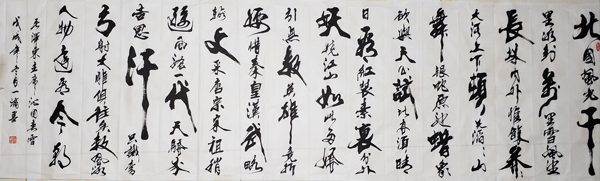 北國風光千
里冰封萬里雪飘望
長城内外惟餘莽莽
大河上下頓失滔滔山
舞银蛇原驰蜡象
欲與天公試比高須晴
日看红装素裹分外
妖娆江山如此多娇
引無數英雄竞折
腰惜秦皇漢武略
输文采唐宗宋祖稍
逊風骚一代天骄成
吉思汗只識弯
弓射大雕俱往矣數風流
人物還看今朝
毛澤東主席沁园春雪
戊戌年冬月一浦書